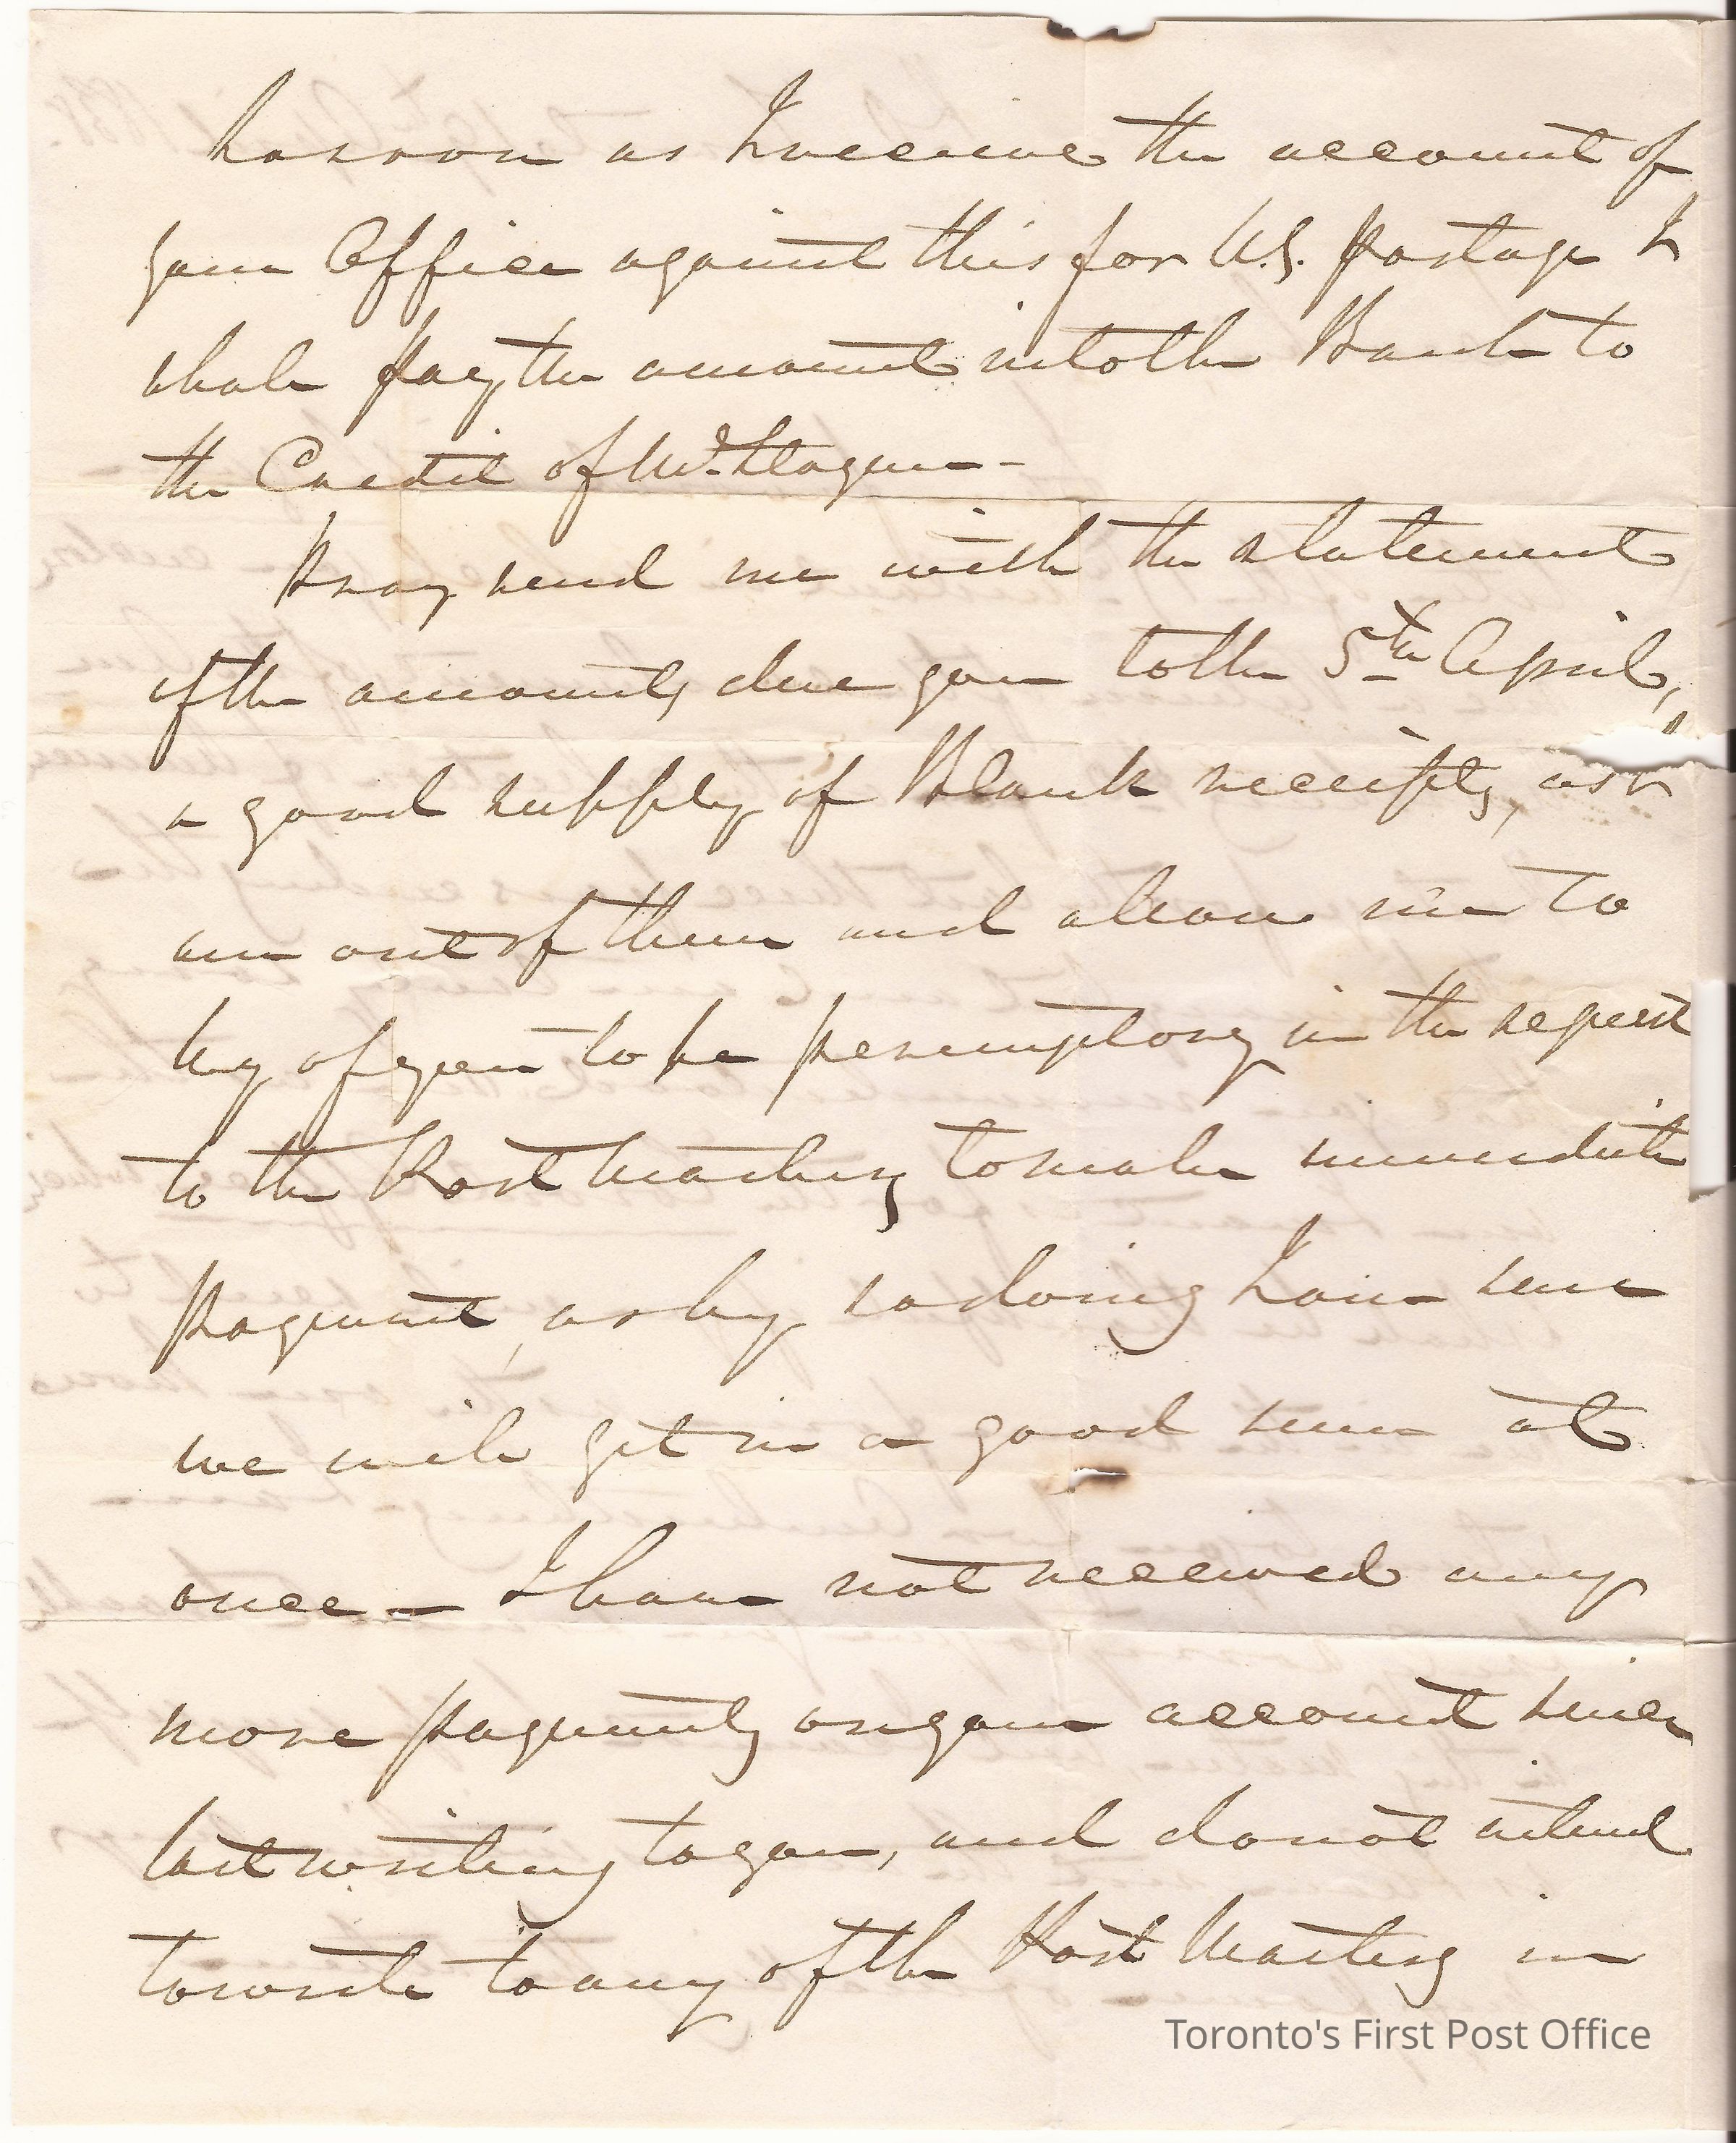 So soon as I receive the account of
your Office against this for U.S. postage I
shall pay the amount into the Bank to
the Credit of Mr. Stayner –
Pray send me with the statement
of the amounts due you to the 5th April,
a good supply of Blank receipts, as I
am out of them and allow me to
beg of you to be peremptory in the request
to the Post Masters to make immediate
payment, as by so doing I am sure
we will get in a good sum at
once – I have not received any
more payments on your account since
last writing to you, and do not intend
to write to any of the Post Masters in
Toronto's First Post Office